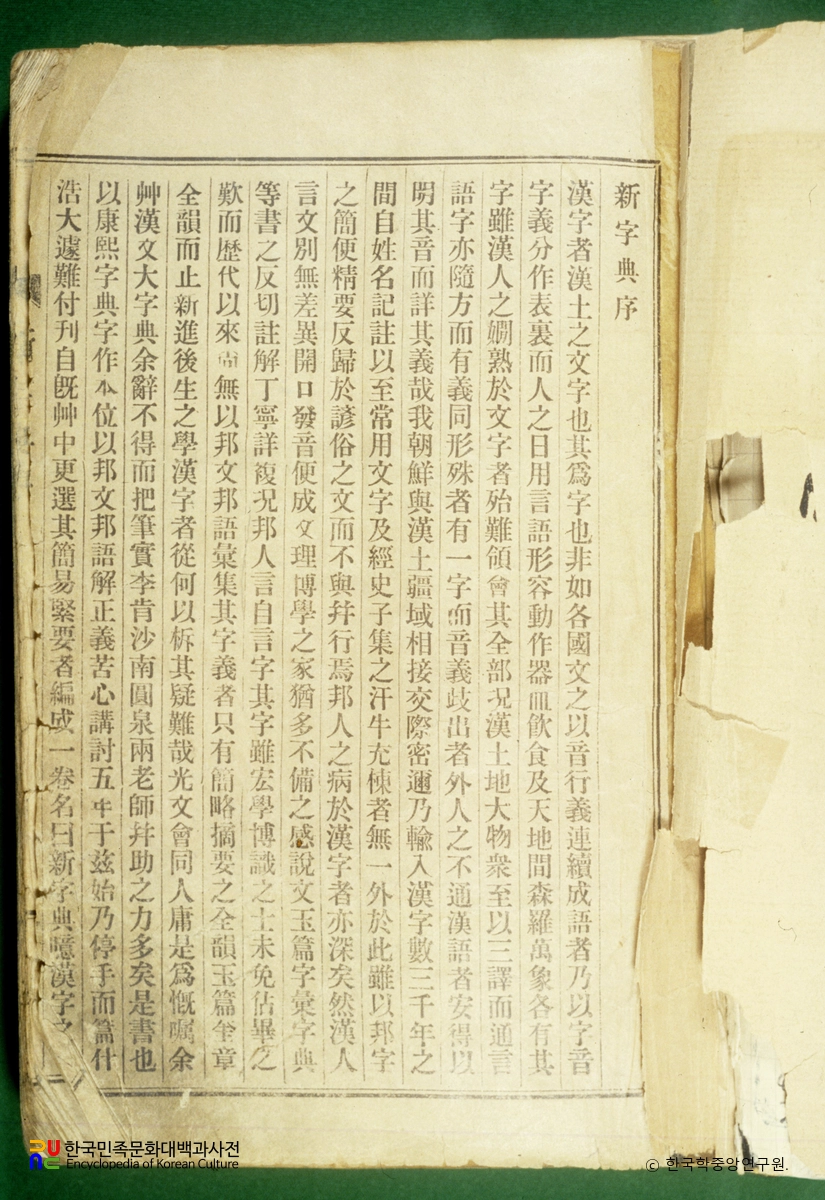 新字典序
漢字者漢土之文字也其爲字也非如各國文之以音行義連續成語者乃以字音
字義分作表裏而人之日用言語形容動作器皿飮食及天地間森羅萬象各有其
字雖漢人之嫺熟於文字者殆難領會其全部况漢土地大物衆至以三譯而通言
語字亦隨方而有義同形殊者有一字而音義歧出者外人之不通漢語者安得以
明其音而詳其義哉我朝鮮與漢土疆域相接交際密邇乃輸入漢字數三千年之
間自姓名記註以至常用文字及經史子集之汗牛充棟者無一外於此雖以邦字
之簡便精要反歸於諺俗之文而不與幷行焉邦人之病於漢字者亦深矣然漢人
言文別無差異開口發音便成文理博學之家猶多不備之感說文玉篇字彙字典
等書之反切註解丁寧詳複况邦人言自言字其字雖宏學博識之士未免佔畢之
歎而歷代以來尙無以邦文邦語彙集其字義者只有簡略摘要之全韻玉篇奎章
全韻而止新進後生之學漢字者從何以柝其疑難哉光文會同人庸是爲慨囑余
艸漢文大字典余辭不得而把筆實李肯沙南圓泉兩老師幷助之力多矣是書也
以康熙字典字作本位以邦文邦語解正義苦心講討五年于玆始乃停手而篇什
浩大遽難付刊自旣艸中更選其簡易緊要者編成一卷名曰新字典噫漢字之
한국민족문화대백과사전
Encyclopedia of Korean Culture
© 한국학중앙연구원.